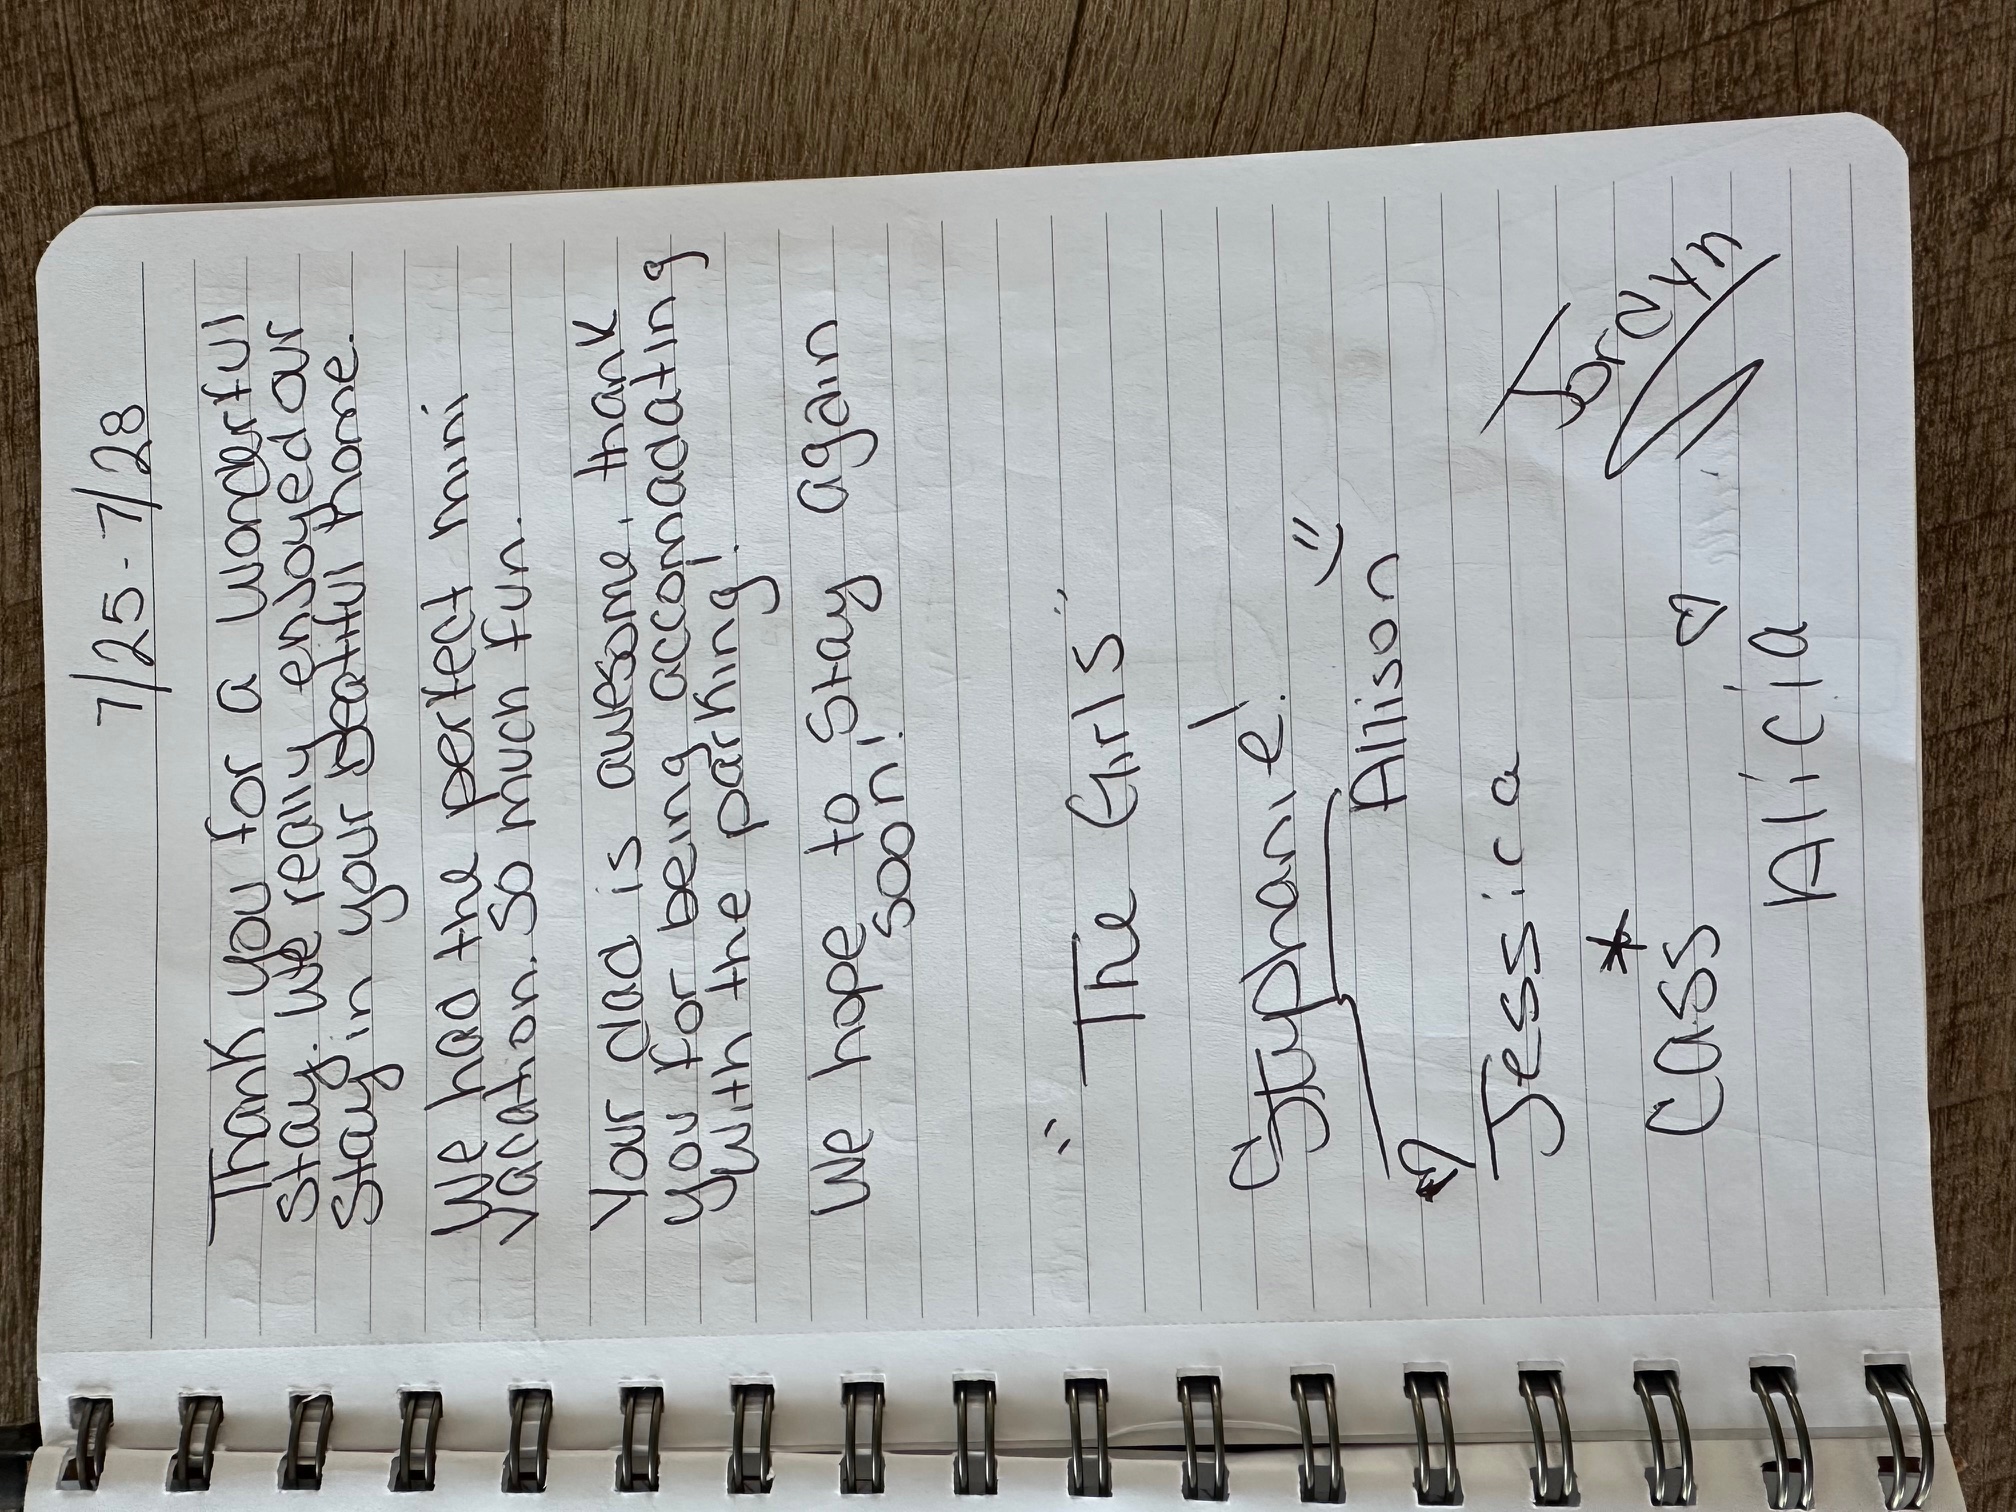 7/25 - 7/28
Thank you for a wonderful
stay. We really enjoyed our
stay in your beatiful home.
We had the perfect mini
vacation. So much fun.
Your dad is awesome, thank
you for being accomadating
with the parking!
We hope to stay again
soon!
"The Girls"
Stephanie!
Allison
Jessica
Jordyn
Cass
Alicia